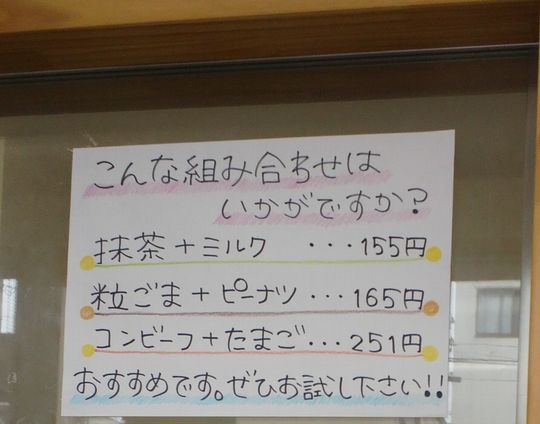 こんな組み合わせは
いかがですか?
抹茶+ミルク ・・・155円
粒ごま+ピーナツ・・・165円
コンビーフ+たまご・・・251円
おすすめです。ぜひお試し下さい!!